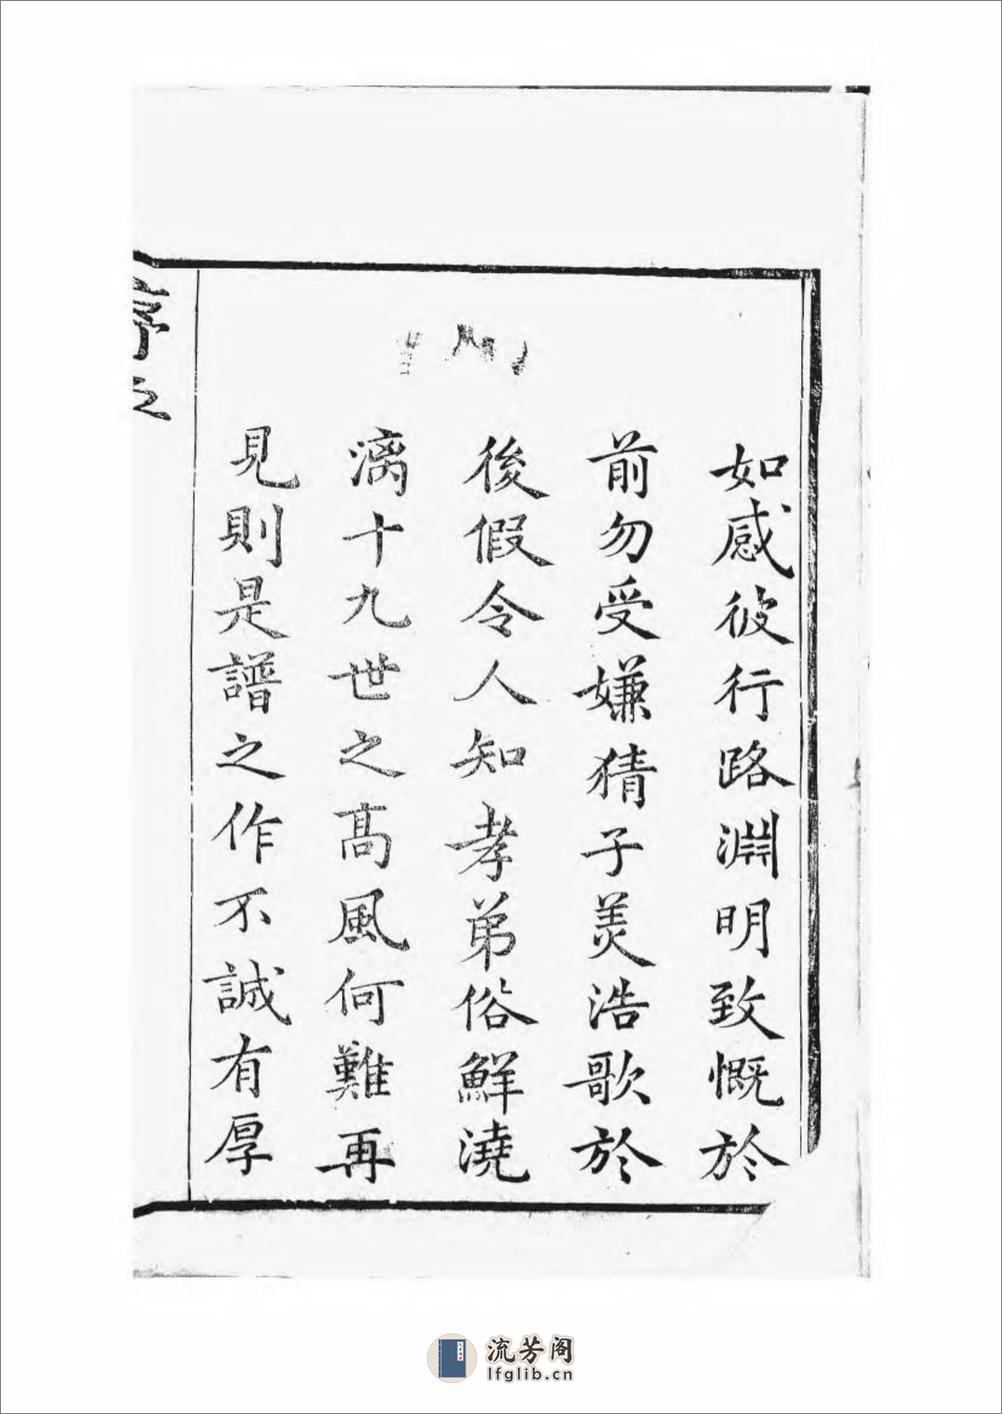 如感彼行路淵明致慨於
前勿受嫌猜子羙浩歌於
後假令人知孝弟俗鮮澆
漓十九世之髙風何難再
見則是譜之作不誠有厚
序
流芳阁
lfglib.cn